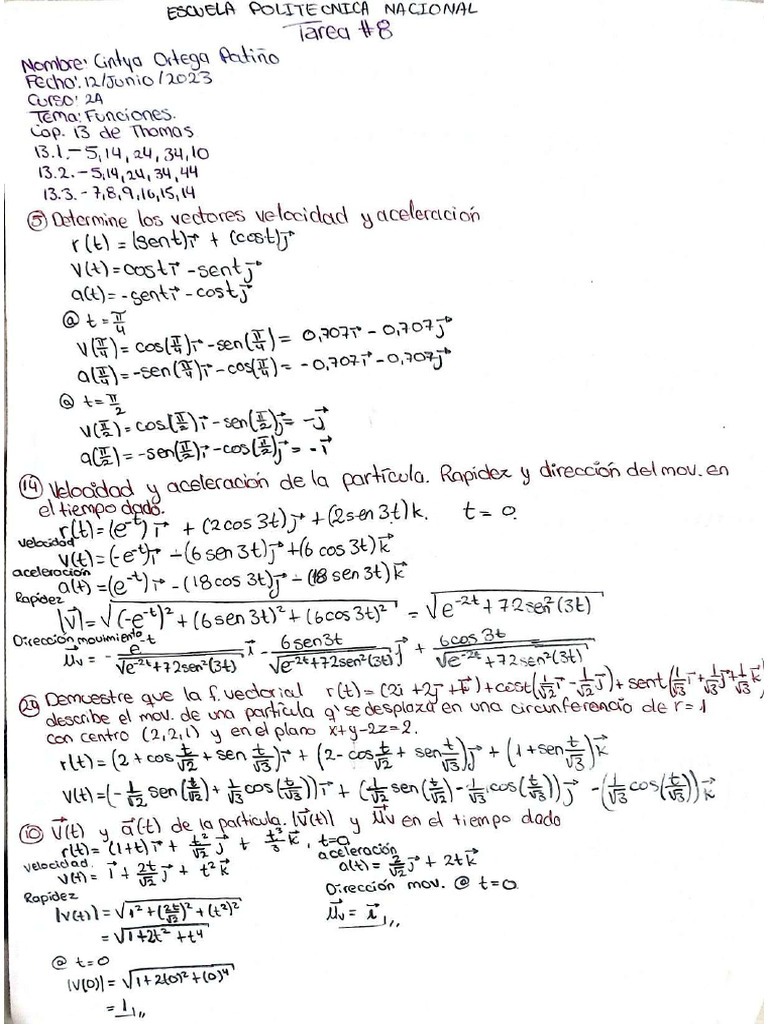 ESCUELA POLITECNICA NACIONAL
Tarea #8
Nombre: Cintya Ortega Patiño
Fecha: 12/Junio/2023
Curso: 2A
Tema: Funciones.
Cap. 13 de Thomas
13.1. - 5, 14, 24, 34, 10
13.2. - 5, 14, 24, 34, 44
13.3. - 7, 8, 9, 16, 15, 14
⑤ Determine los vectores velocidad y aceleración
r(t) = (sent)i⃗ + (cost)j⃗
v(t) = cost i⃗ - sent j⃗
a(t) = -sent i⃗ - cost j⃗
@ t = π/4
v(π/4) = cos(π/4)i⃗ - sen(π/4)j⃗ = 0,707i⃗ - 0,707j⃗
a(π/4) = -sen(π/4)i⃗ - cos(π/4)j⃗ = -0,707i⃗ - 0,707j⃗
@ t = π/2
v(π/2) = cos(π/2)i⃗ - sen(π/2)j⃗ = -j⃗
a(π/2) = -sen(π/2)i⃗ - cos(π/2)j⃗ = -i⃗
⑭ Velocidad y aceleración de la partícula. Rapidez y dirección del mov. en
el tiempo dado.
r(t) = (e^-t)i⃗ + (2cos 3t)j⃗ + (2sen 3t)k. t = 0.
velocidad
v(t) = (-e^-t)i⃗ - (6 sen 3t)j⃗ + (6 cos 3t)k⃗
aceleración
a(t) = (e^-t)i⃗ - (18 cos 3t)j⃗ - (18 sen 3t)k⃗
Rapidez
|v⃗| = √((-e^-t)² + (6 sen 3t)² + (6cos 3t)²) = √(e^-2t + 72sen²(3t))
Dirección movimiento
μ⃗v = - e^-t/√(e^-2t + 72sen²(3t)) i⃗ - 6sen3t/√(e^-2t + 72sen²(3t)) j⃗ + 6cos 3t/√(e^-2t + 72sen²(3t)) k⃗
㉔ Demuestre que la f. vectorial r(t) = (2i + 2j⃗ + k⃗) + cost(1/√2 i⃗ - 1/√2 j⃗) + sent(1/√3 i⃗ + 1/√3 j⃗ + 1/√3 k⃗)
describe el mov. de una partícula q' se desplaza en una circunferencia de r = 1
con centro (2,2,1) y en el plano x+y-2z=2.
r(t) = (2 + cos t/√2 + sen t/√3)i⃗ + (2 - cos t/√2 + sen t/√3)j⃗ + (1 + sen t/√3)k⃗
v(t) = (-1/√2 sen(t/√2) + 1/√3 cos(t/√3))i⃗ + (1/√2 sen(t/√2) - 1/√3 cos(t/√3))j⃗ - (1/√3 cos(t/√3))k⃗
⑩ v⃗(t) y a⃗(t) de la particula. |v⃗(t)| y μ⃗v en el tiempo dado
r(t) = (1+t)i⃗ + t²/√2 j⃗ + t³/3 k⃗, t=0
velocidad.
v(t) = i⃗ + 2t/√2 j⃗ + t² k⃗
aceleración
a(t) = 2/√2 j⃗ + 2t k⃗
Dirección mov. @ t=0
μ⃗v = i⃗
Rapidez
|v(t)| = √(1² + (2t/√2)² + (t²)²)
= √(1 + 2t² + t⁴)
@ t=0
|v(0)| = √(1 + 2(0)² + (0)⁴)
= 1